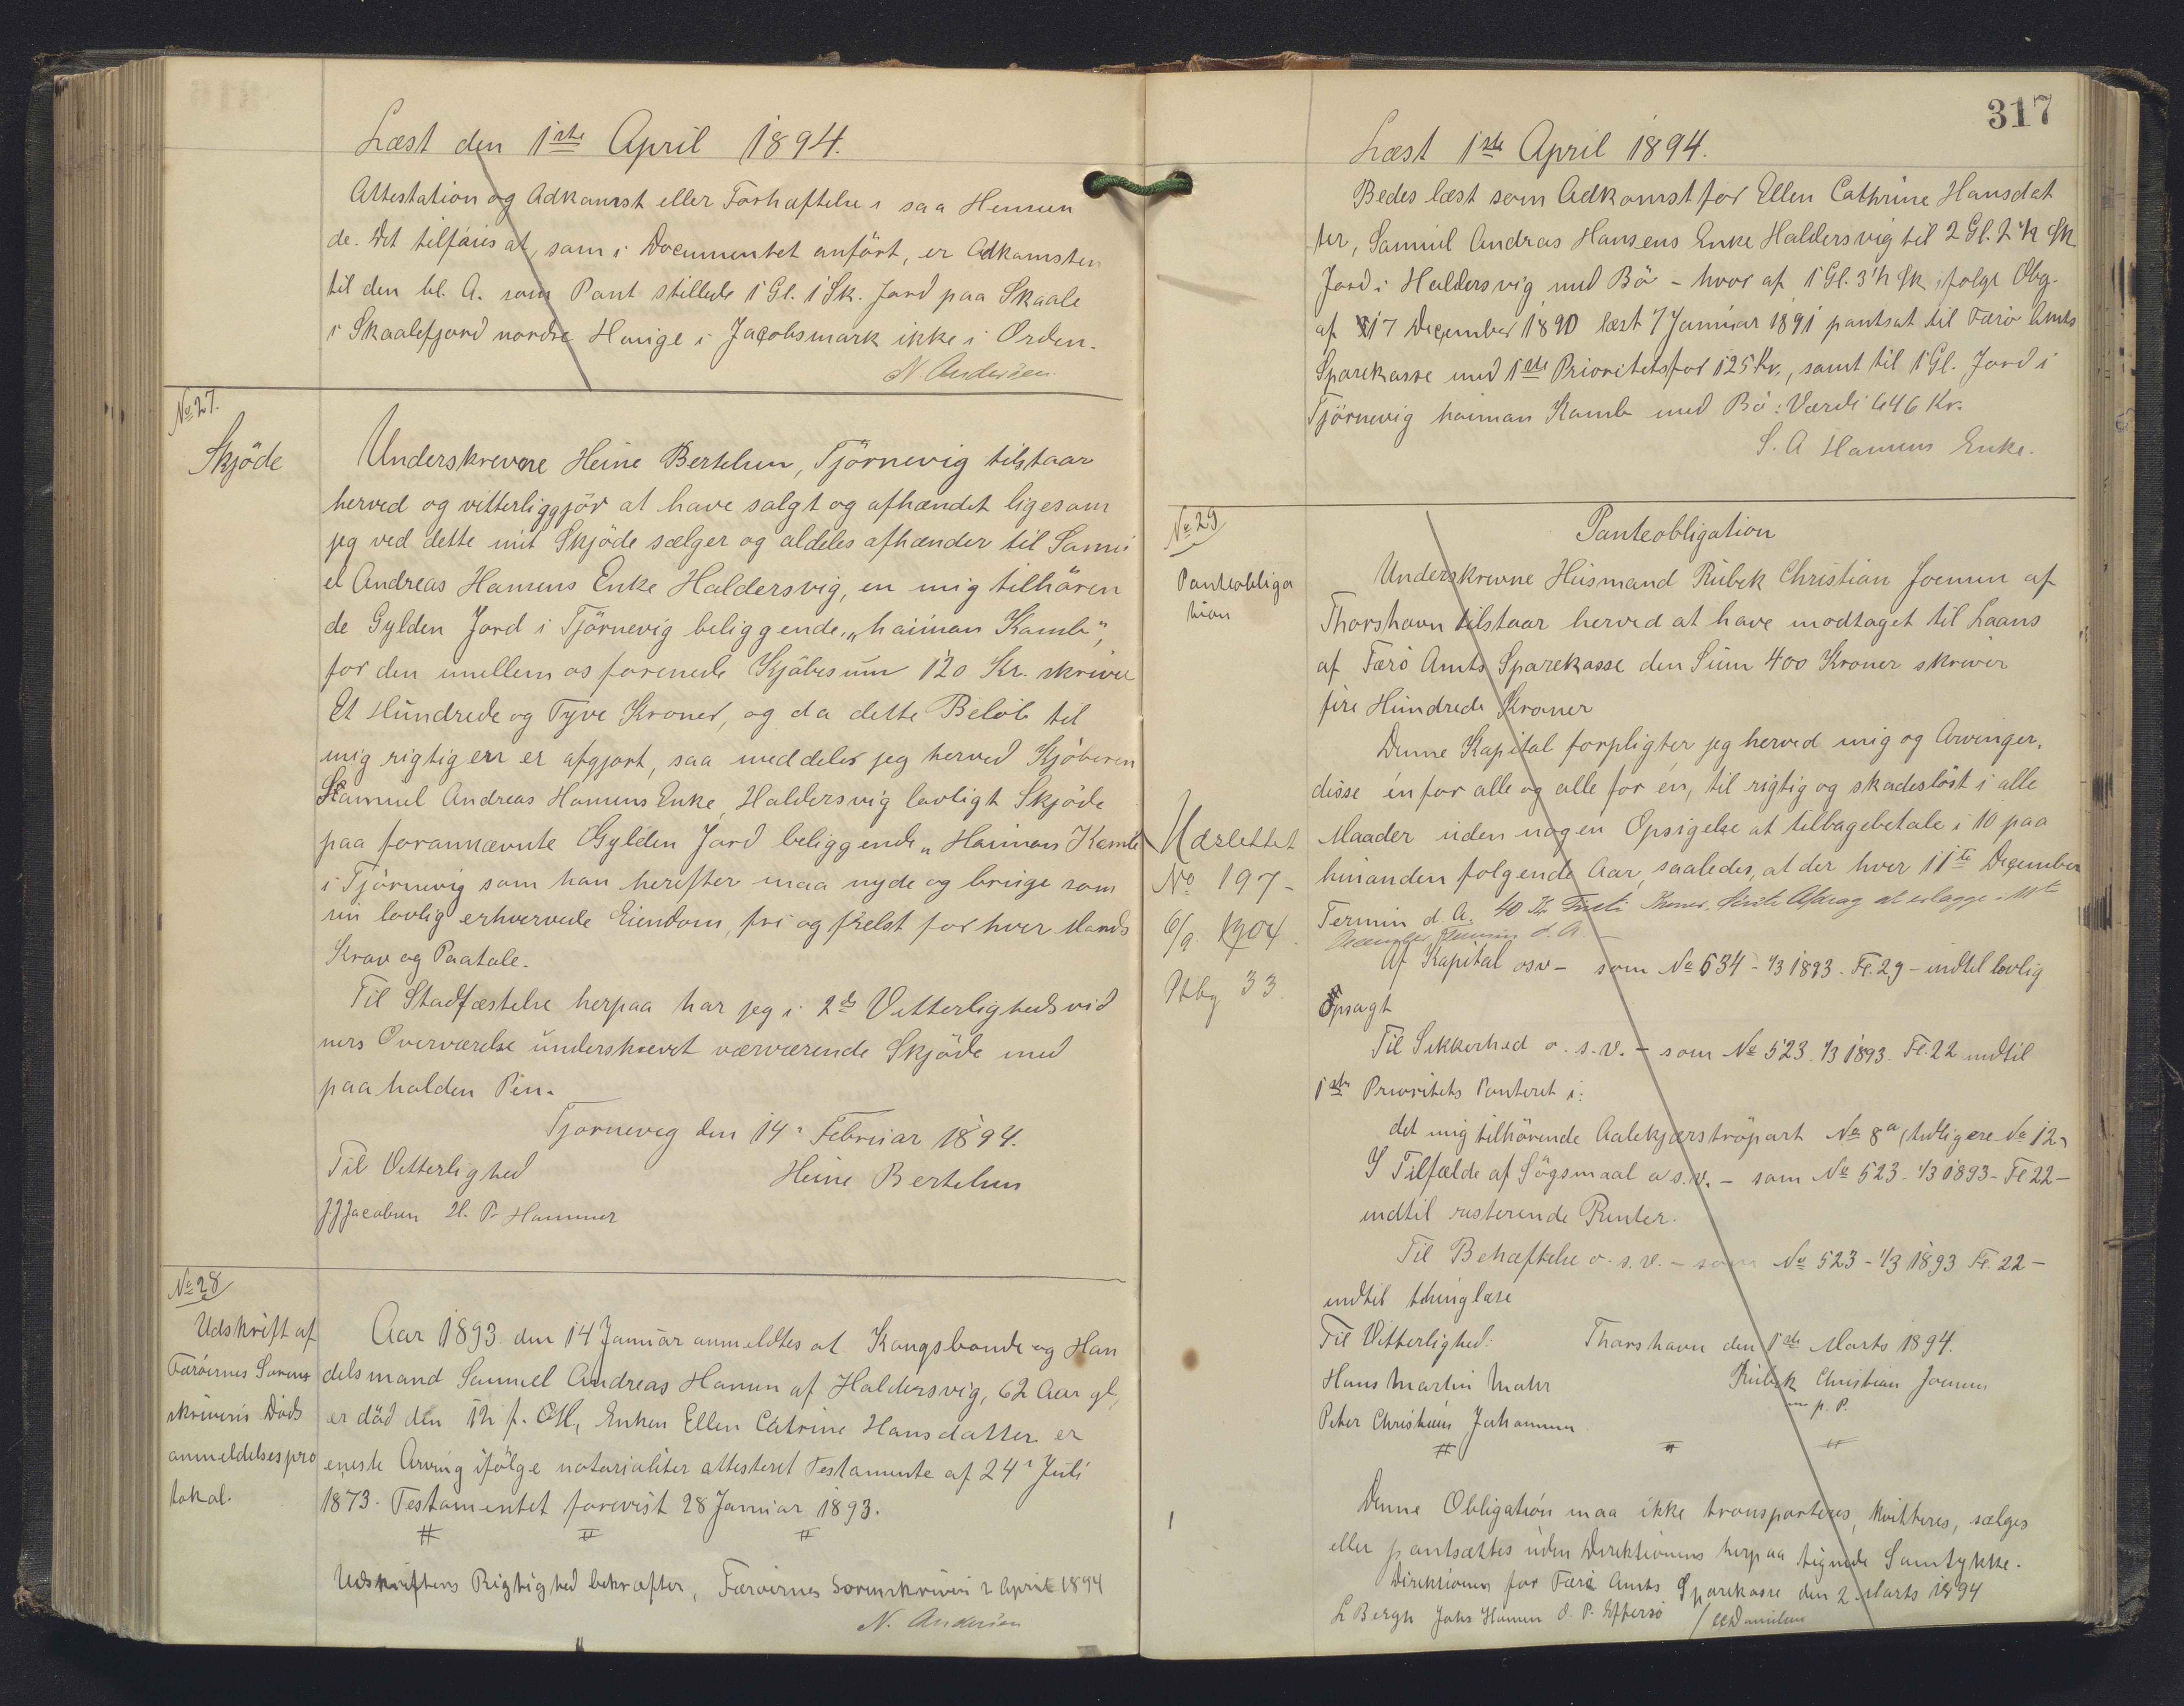 Læst den 1ste April 1894.
Attestation og Adkomst eller Forhæftelse i saa Henseen
de. Det tilføies at, som i Documentet anført, er Adkomsten
til den bl. A. som Pant stillede 1 Gl. 1 Sk. Jord paa Skaale
i Skaalefjord nordre Hauge i Jacobsmark ikke i Orden.
N. Andersen.
No 27.
Skjöde
Underskrevne Heine Bertelsen, Tjörnevig tilstaar
herved og vitterliggjör at have solgt og afhændet ligesom
jeg ved dette mit Skjöde sælger og aldeles afhænder til Samu
el Andreas Hansens Enke Haldersvig, en mig tilhören
de Gylden Jord i Tjörnevig beliggende „haiman Kamb",
for den imellem os forenede Kjöbesum 120 Kr. skriver
Et Hundrede og Tyve Kroner, og da dette Belöb til
mig rigtigen er afgjort, saa meddeler jeg herved Kjöberen
Samuel Andreas Hansens Enke, Haldersvig lovligt Skjöde
paa forannævnte Gylden Jord beliggende „Haiman Kamb
i Tjörnevig som han herefter maa nyde og bruge som
sin lovlig erhvervede Eiendom, fri og frelst for hver Mands
Krav og Paatale.
Til Stadfæstelse herpaa har jeg i 2de Vitterlighedsvid
ners Overværelse underskrevet nærværende Skjöde med
paaholden Pen.
Tjörnevig den 14 Februar 1894.
Til Vitterlighed
Heine Bertelsen
J J Jacobsen H. P. Hammer
No 28
Udskrift af
Færöernes Soren
skriveris Döds
anmeldelsespro
tokol.
Aar 1893 den 14 Januar anmeldtes at Kongsbonde og Han
delsmand Samuel Andreas Hansen af Haldersvig, 62 Aar gl,
er död den 12 f. M., Enken Ellen Catrine Hansdatter er
eneste Arving ifölge notarialiter attesteret Testamente af 24 Juli
1873. Testamentet forevist 28 Januar 1893.
# # #
Udskriftens Rigtighed bekræfter, Færöernes Sorenskriveri 2 April 1894
N. Andersen
317
Læst 1ste April 1894.
Bedes læst som Adkomst for Ellen Cathrine Hansdat
ter, Samuel Andreas Hansens Enke Haldersvig til 2 Gl. 2 1/2 Sk
Jord i Haldersvig med Bö - hvor af 1 Gl. 3 1/2 Sk ifölge Obg.
af 17 December 1890 læst 7 Januar 1891 pantsat til Færö Amts
Sparekasse med 1ste Prioritet for 125 Kr., samt til 1 Gl. Jord i
Tjörnevig haiman Kamb med Bö: Værdi 646 Kr.
S. A Hansens Enke.
No 29
Panteobliga
tion
Panteobligation
Underskrevne Husmand Rubek Christian Joensen af
Thorshavn tilstaar herved at have modtaget til Laans
af Færö Amts Sparekasse den Sum 400 Kroner skriver
fire Hundrede Kroner
Denne Kapital forpligter jeg herved mig og Arvinger,
disse én for alle og alle for én, til rigtig og skadeslöst i alle
Maader uden nogen Opsigelse at tilbagebetale i 10 paa
hinanden fölgende Aar, saaledes, at der hver 11te December
Termin d. A. 40 Kr Fyrti Kroner, förste Afdrag at erlægge 11te
December Termin d. A.
Udslettet
No 197-
6/9. 1904.
Ptbg 33.
Af Kapital osv- som No 534 - 1/3 1893. Fl. 29 - indtil lovlig
Opsagt
Til Sikkerhed o. s. v. - som No 523. 1/3 1893. Fl. 22 indtil
1ste Prioritets Panteret i:
det mig tilhörende Aalekjærströpart No 8a (tidligere No 12)
I Tilfælde af Sögsmaal o s. v. - som No 523 - 1/3 1893 - Fl 22 -
indtil resterende Renter.
Til Behæftelse o. s. v. - som No 523 - 1/3 1893 Fl. 22 -
indtil thinglæse
Til Vitterlighed:
Thorshavn den 1ste Marts 1894.
Hans Martin Mohr
Rubek Christian Joensen
m p. P.
Peter Christian Johannesen
# # #
Denne Obligation maa ikke transporteres, kvitteres, sælges
eller pantsættes uden Direktionens herpaa tegnede Samtykke.
Direktionen for Færö Amts Sparekasse den 2 Marts 1894
L Bergh Johs Hansen O. P. Effersö / CCDanielsen